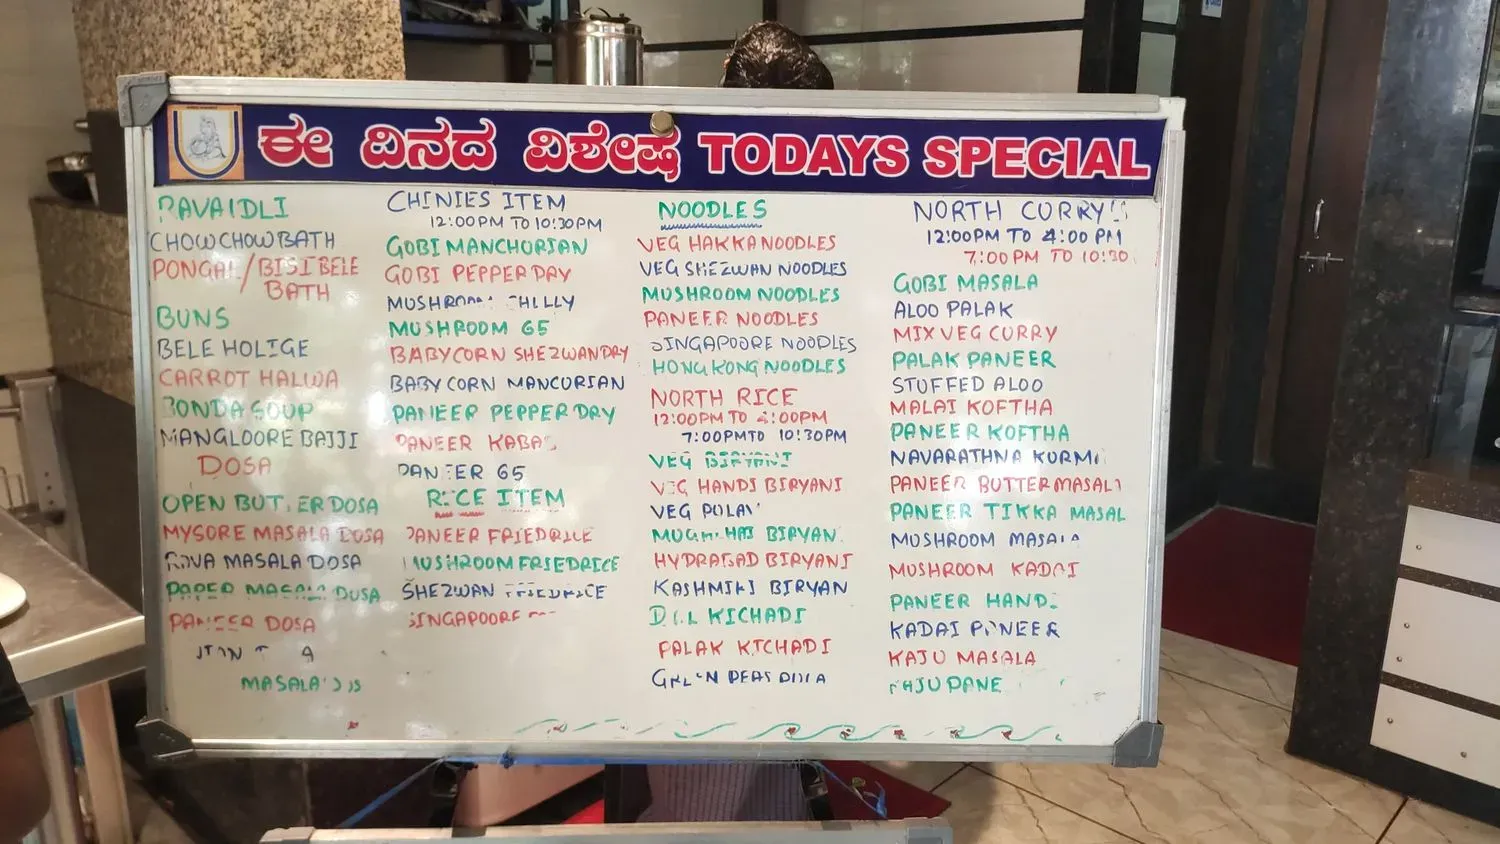 ಈ ದಿನದ ವಿಶೇಷ TODAYS SPECIAL
RAVAIDLI
CHOWCHOWBATH
PONGAL/BISIBELE
BATH
BUNS
BELE HOLIGE
CARROT HALWA
BONDA SOUP
MANGLOORE BAJJI
DOSA
OPEN BUTTER DOSA
MYSORE MASALA DOSA
RAVA MASALA DOSA
PAPER MASALA DOSA
PANEER DOSA
MASALA
CHINIES ITEM
12:00PM TO 10:30PM
GOBI MANCHURIAN
GOBI PEPPER DAY
MUSHROOM CHILLY
MUSHROOM 65
BABYCORN SHEZWANDRY
BABY CORN MANCURIAN
PANEER PEPPER DRY
PANEER
PANEER 65
RICE ITEM
PANEER FRIEDRICE
MUSHROOM FRIEDRICE
SHEZWAN FRIEDRICE
SINGAPOORE
NOODLES
VEG HAKKA NOODLES
VEG SHEZWAN NOODLES
MUSHROOM NOODLES
PANEER NOODLES
SINGAPOORE NOODLES
HONGKONG NOODLES
NORTH RICE
12:00PM TO 4:00PM
7:00PMTO 10:30PM
VEG BIRYANI
VEG HANDI BIRYANI
VEG PULAV
MUGHLHAI BIRYAN
HYDRABAD BIRYANI
KASHMIRI BIRYAN
DAL KICHADI
PALAK KICHADI
GREEN PEAS
NORTH CURRY'S
12:00PM TO 4:00 PM
7:00 PM TO 10:30
GOBI MASALA
ALOO PALAK
MIX VEG CURRY
PALAK PANEER
STUFFED ALOO
MALAI KOFTHA
PANEER KOFTHA
NAVARATHNA KURMA
PANEER BUTTER MASALA
PANEER TIKKA MASAL
MUSHROOM MASALA
MUSHROOM KADAI
PANEER HANDI
KADAI PANEER
KAJU MASALA
KAJU PANE